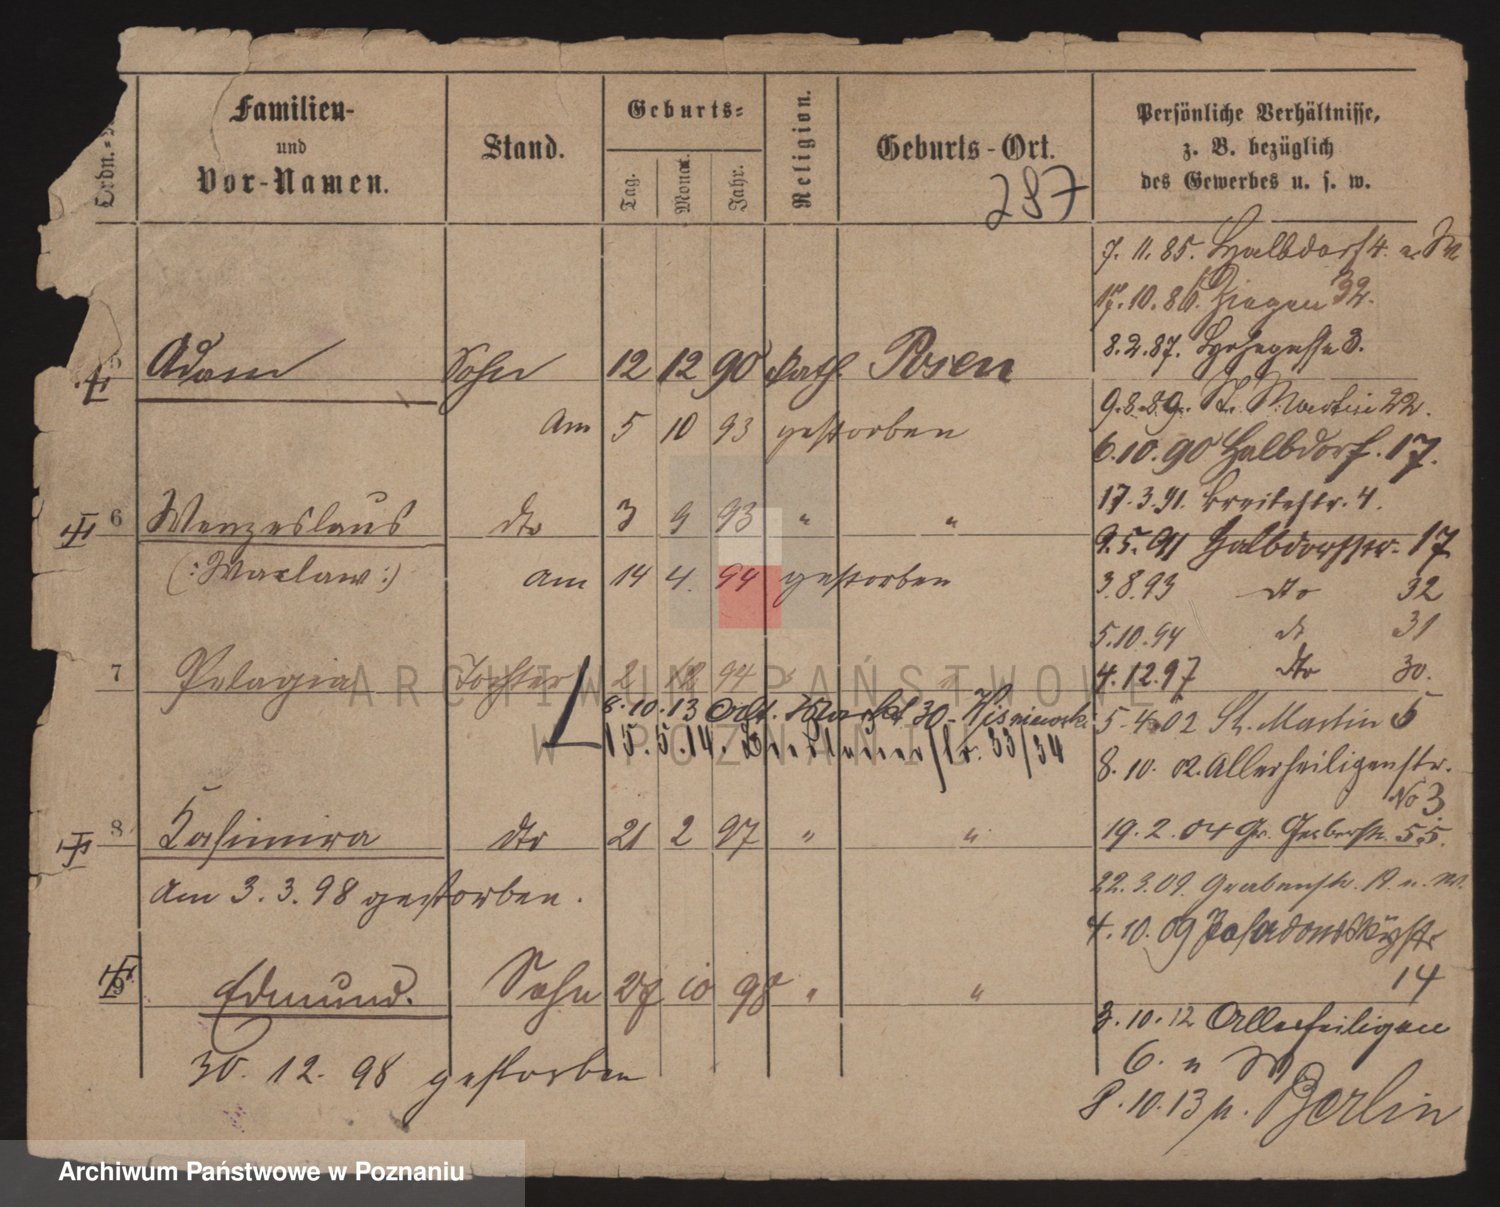 Ordn.
Familien-
und
Vor-Namen.
Stand.
Geburts-
Tag.
Monat.
Jahr.
Religion.
Geburts-Ort.
287
Persönliche Verhältnisse,
z. B. bezüglich
des Gewerbes u. s. w.
7. 11. 85. Halbdorf 4. u. W
17. 10. 86. Ziegen 32.
8. 2. 87. 3.
5 Adam Sohn 12 12 90 kath. Posen
9. 8. 89. St. Martin 22.
am 5 10 93 gestorben
6. 10. 90 Halbdorf. 17.
17. 3. 91. Breitestr. 4.
6 Wenzeslaus dto 3 9 93 " "
9. 5. 91 Halbdorfstr. 17
(: Waclaw :) am 14 4. 94 gestorben
3. 8. 93 dto 32
5. 10. 94 dt 31
7 Pelagia Tochter 2 12 94 " "
4. 12. 97 dto 30.
8. 10. 13 Alt. Markt 30 - Wisniewski
5. 4. 02 St. Martin 6
15. 5. 14. 33/34
8. 10. 02. Allerheiligenstr.
No 3.
8 Kasimira dto 21 2 97 " "
19. 2. 04 Gr. Gerberstr. 55.
am 3. 3. 98 gestorben.
22. 3. 09. Grabenstr. u. W.
4. 10. 09 Posadowskystr
14
9 Edmund. Sohn 27 10 98 " "
3. 10. 12 Allerheiligen
6. u W
30. 12. 98 gestorben
8. 10. 13 n. Berlin
ARCHIWUM PAŃSTWOWE
W POZNANIU
Archiwum Państwowe w Poznaniu